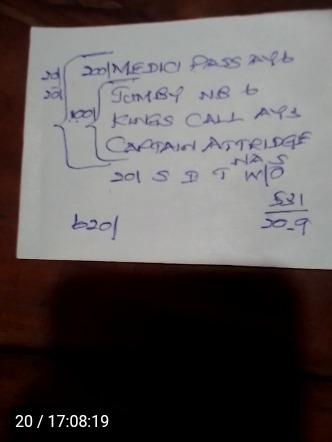 20/ 200/ MEDICI PASS AY 6
20/
100/ JOMBY NB 6
KINGS CALL AY 3
CAPTAIN ATTRIDGE
NAS
20/ S D T W/O
531
b20/
20-9
20 / 17:08:19